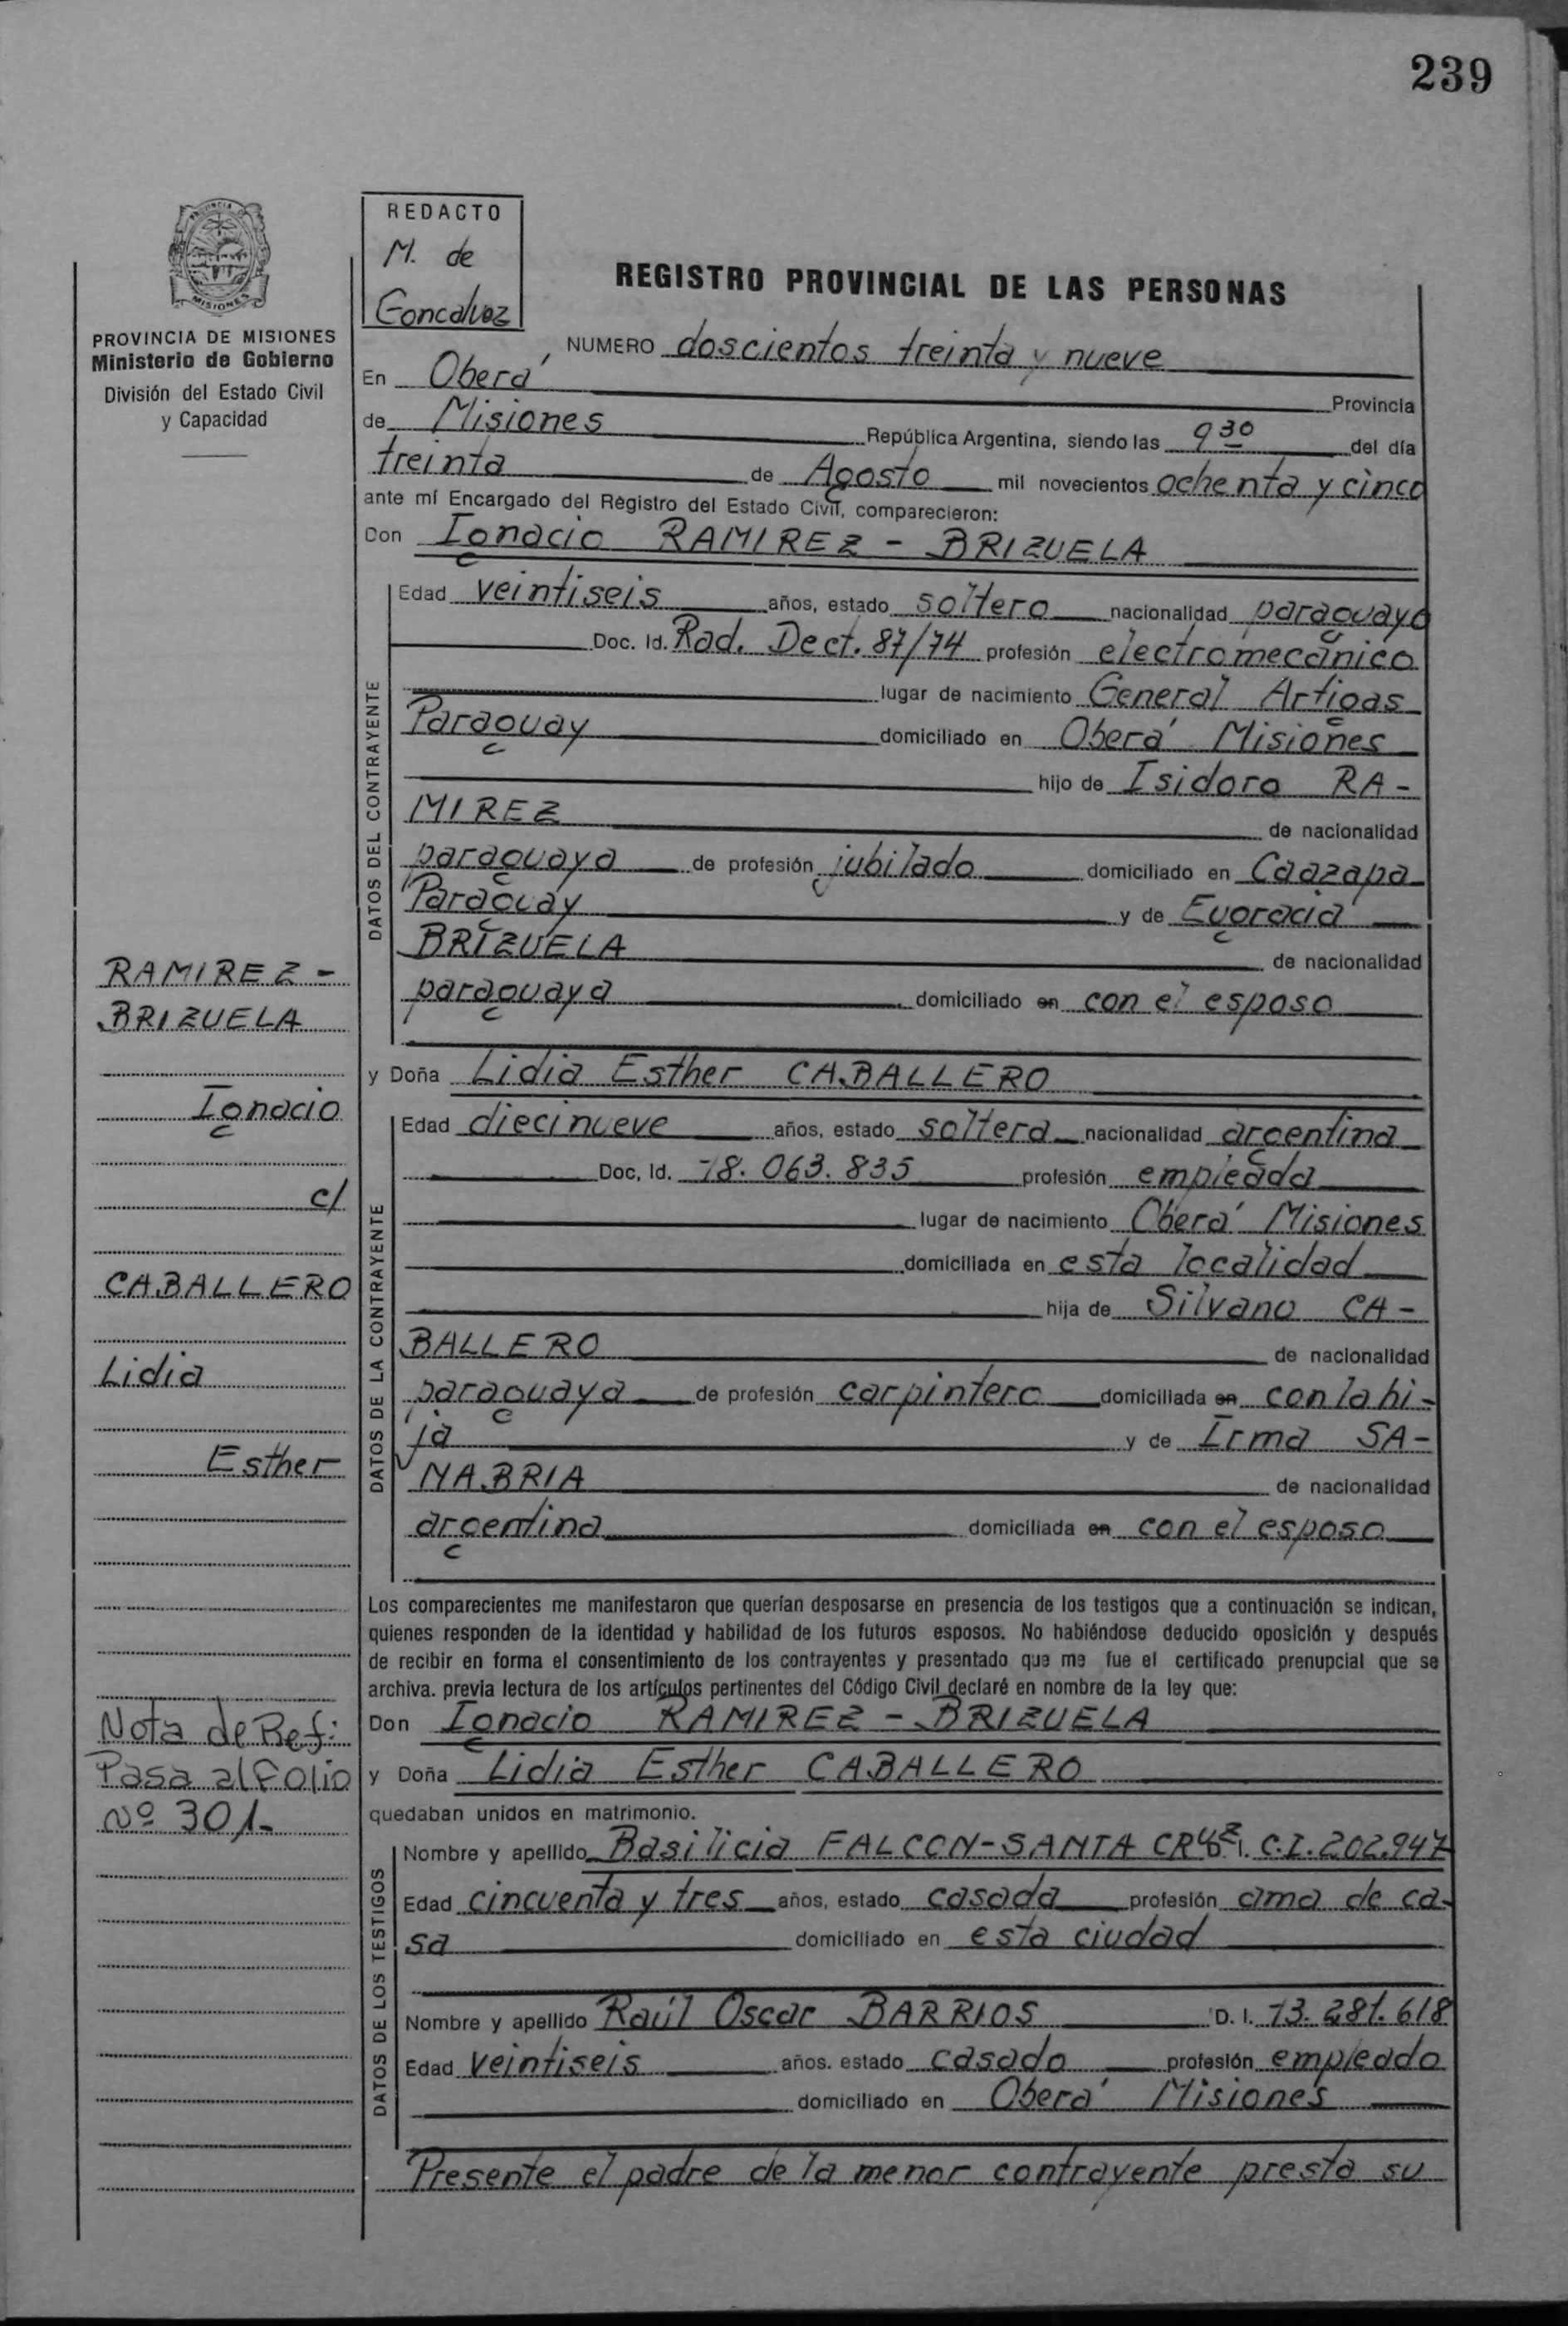 239
PROVINCIA DE MISIONES
PROVINCIA DE MISIONES
Ministerio de Gobierno
División del Estado Civil
y Capacidad
REDACTO
M. de
Goncalvez
REGISTRO PROVINCIAL DE LAS PERSONAS
NUMERO doscientos treinta y nueve
En Oberá Provincia
de Misiones República Argentina, siendo las 9 30 del día
treinta de Agosto mil novecientos ochenta y cinco
ante mí Encargado del Registro del Estado Civil, comparecieron:
Don Ignacio RAMIREZ - BRIZUELA
DATOS DEL CONTRAYENTE
Edad veintiseis años, estado soltero nacionalidad paraguaya
Doc. Id. Rad. Dect. 87/74 profesión electromecánico
lugar de nacimiento General Artigas
Paraguay domiciliado en Oberá Misiones
hijo de Isidoro RA-
MIREZ de nacionalidad
paraguaya de profesión jubilado domiciliado en Caazapa
Paraguay y de Eugracia
BRIZUELA de nacionalidad
paraguaya domiciliado en con el esposo
y Doña Lidia Esther CABALLERO
DATOS DE LA CONTRAYENTE
Edad diecinueve años, estado soltera nacionalidad argentina
Doc, Id. 18.063.835 profesión empleada
lugar de nacimiento Oberá Misiones
domiciliada en esta localidad
hija de Silvano CA-
BALLERO de nacionalidad
paraguaya de profesión carpintero domiciliada en con la hi-
ja y de Irma SA-
NABRIA de nacionalidad
argentina domiciliada en con el esposo
Los comparecientes me manifestaron que querían desposarse en presencia de los testigos que a continuación se indican,
quienes responden de la identidad y habilidad de los futuros esposos. No habiéndose deducido oposición y después
de recibir en forma el consentimiento de los contrayentes y presentado que me fue el certificado prenupcial que se
archiva. previa lectura de los artículos pertinentes del Código Civil declaré en nombre de la ley que:
Don Ignacio RAMIREZ - BRIZUELA
y Doña Lidia Esther CABALLERO
quedaban unidos en matrimonio.
DATOS DE LOS TESTIGOS
Nombre y apellido Basilicia FALCON-SANTA CRUZ C.I. 202.947
Edad cincuenta y tres años, estado casada profesión ama de ca-
sa domiciliado en esta ciudad
Nombre y apellido Raúl Oscar BARRIOS D. I. 13.281.618
Edad veintiseis años. estado casado profesión empleado
domiciliado en Oberá Misiones
Presente el padre de la menor contrayente presta su
RAMIREZ -
BRIZUELA
Ignacio
c/
CABALLERO
Lidia
Esther
Nota de Ref:
Pasa al Folio
Nº 301-